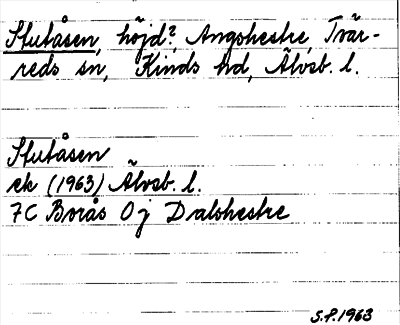 Stutåsen, höjd?, Angshestre, Tvär-
reds sn, Kinds hd, Älvsb. l.
Stutåsen
ek (1963) Älvsb. l.
7C Borås 0j Dalshestre
S.P. 1963